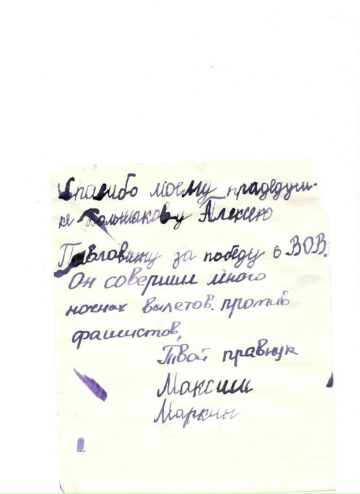 Спасибо моему прадедуш-
ке Большакову Алексею
Павловичу за победу в ВОВ.
Он совершил много
ночных вылетов против
фашистов,
Твой правнук
Максим
Маркин